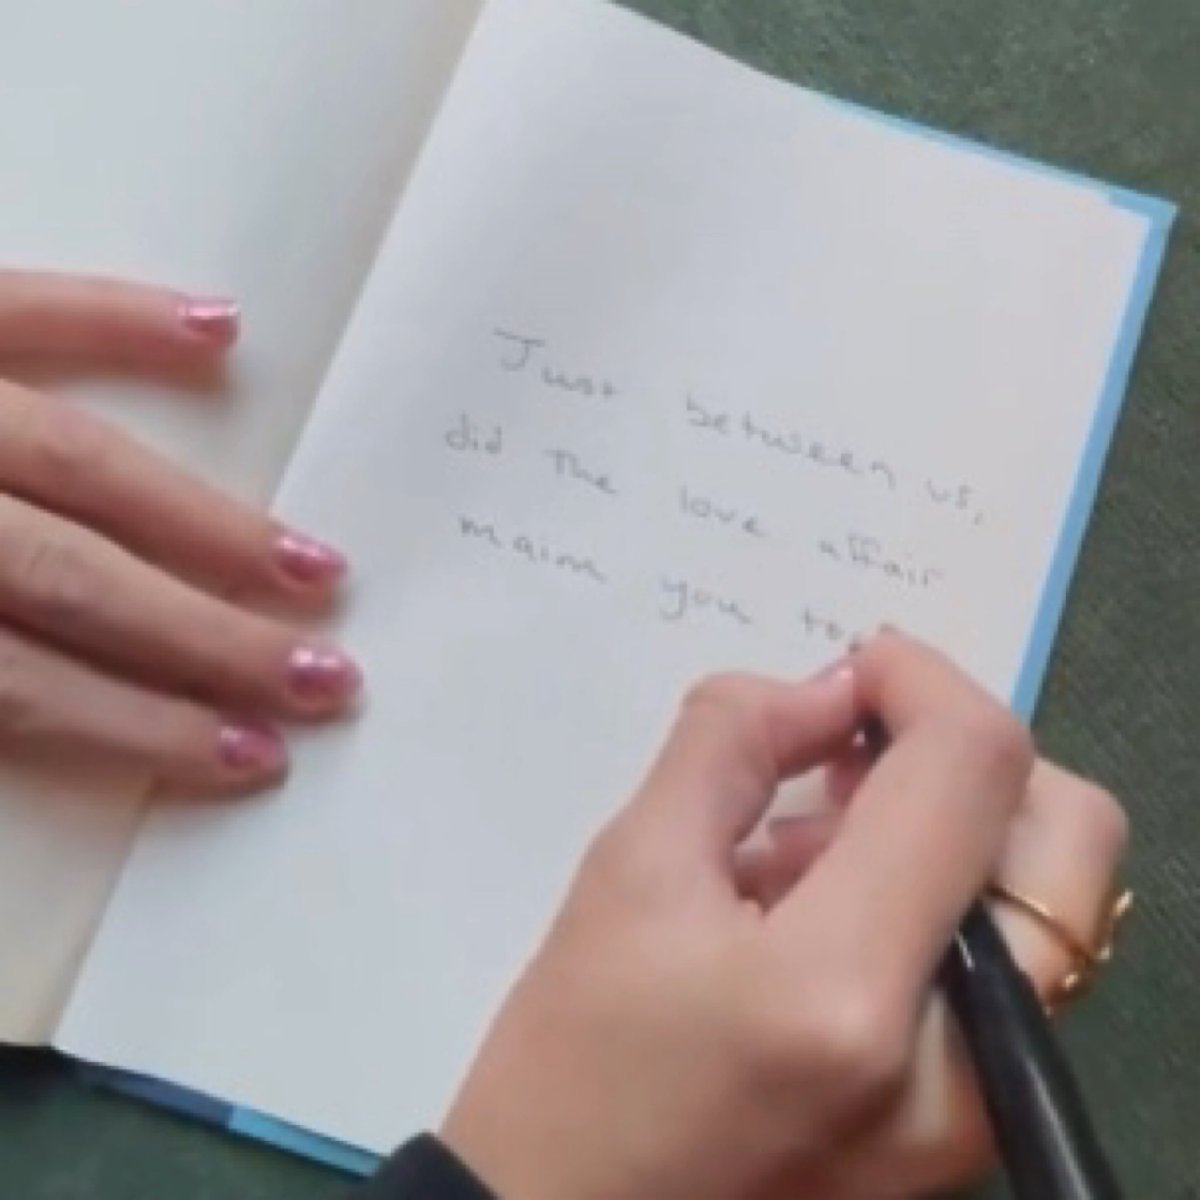 Just between us,
did the love affair
maim you too